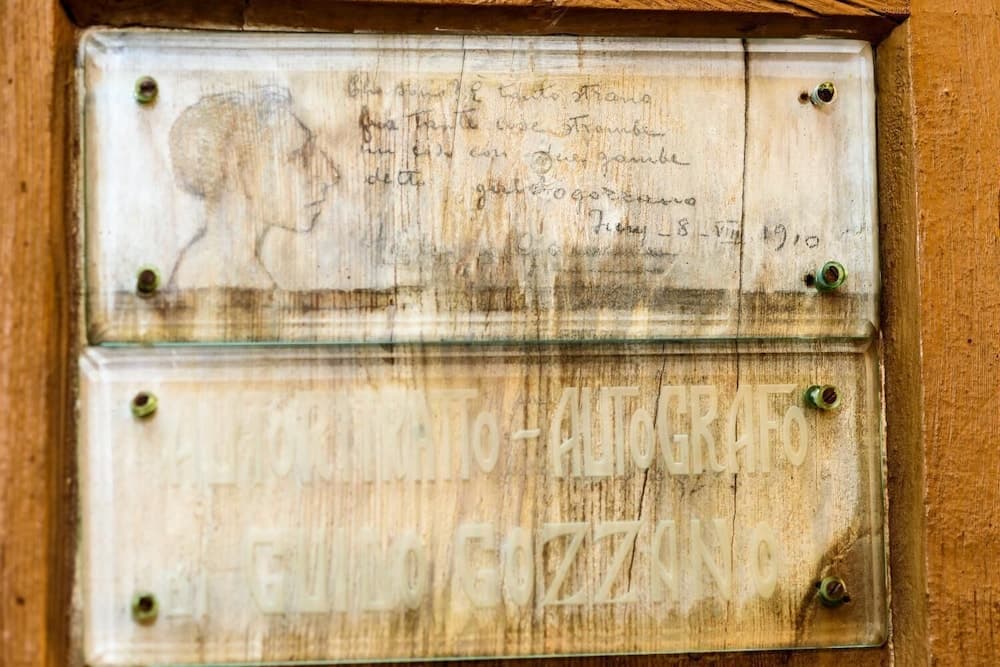 Chi sono? È tanto strano
fra tante cose strambe
un coso con due gambe
detto guidogozzano
8 - VIII 1910
AUTORITRATTO - AUTOGRAFO
DI GUIDO GOZZANO